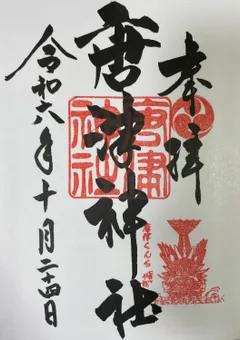 奉拝
唐津神社
唐津神社
唐津くんち
令和六年十月二十四日